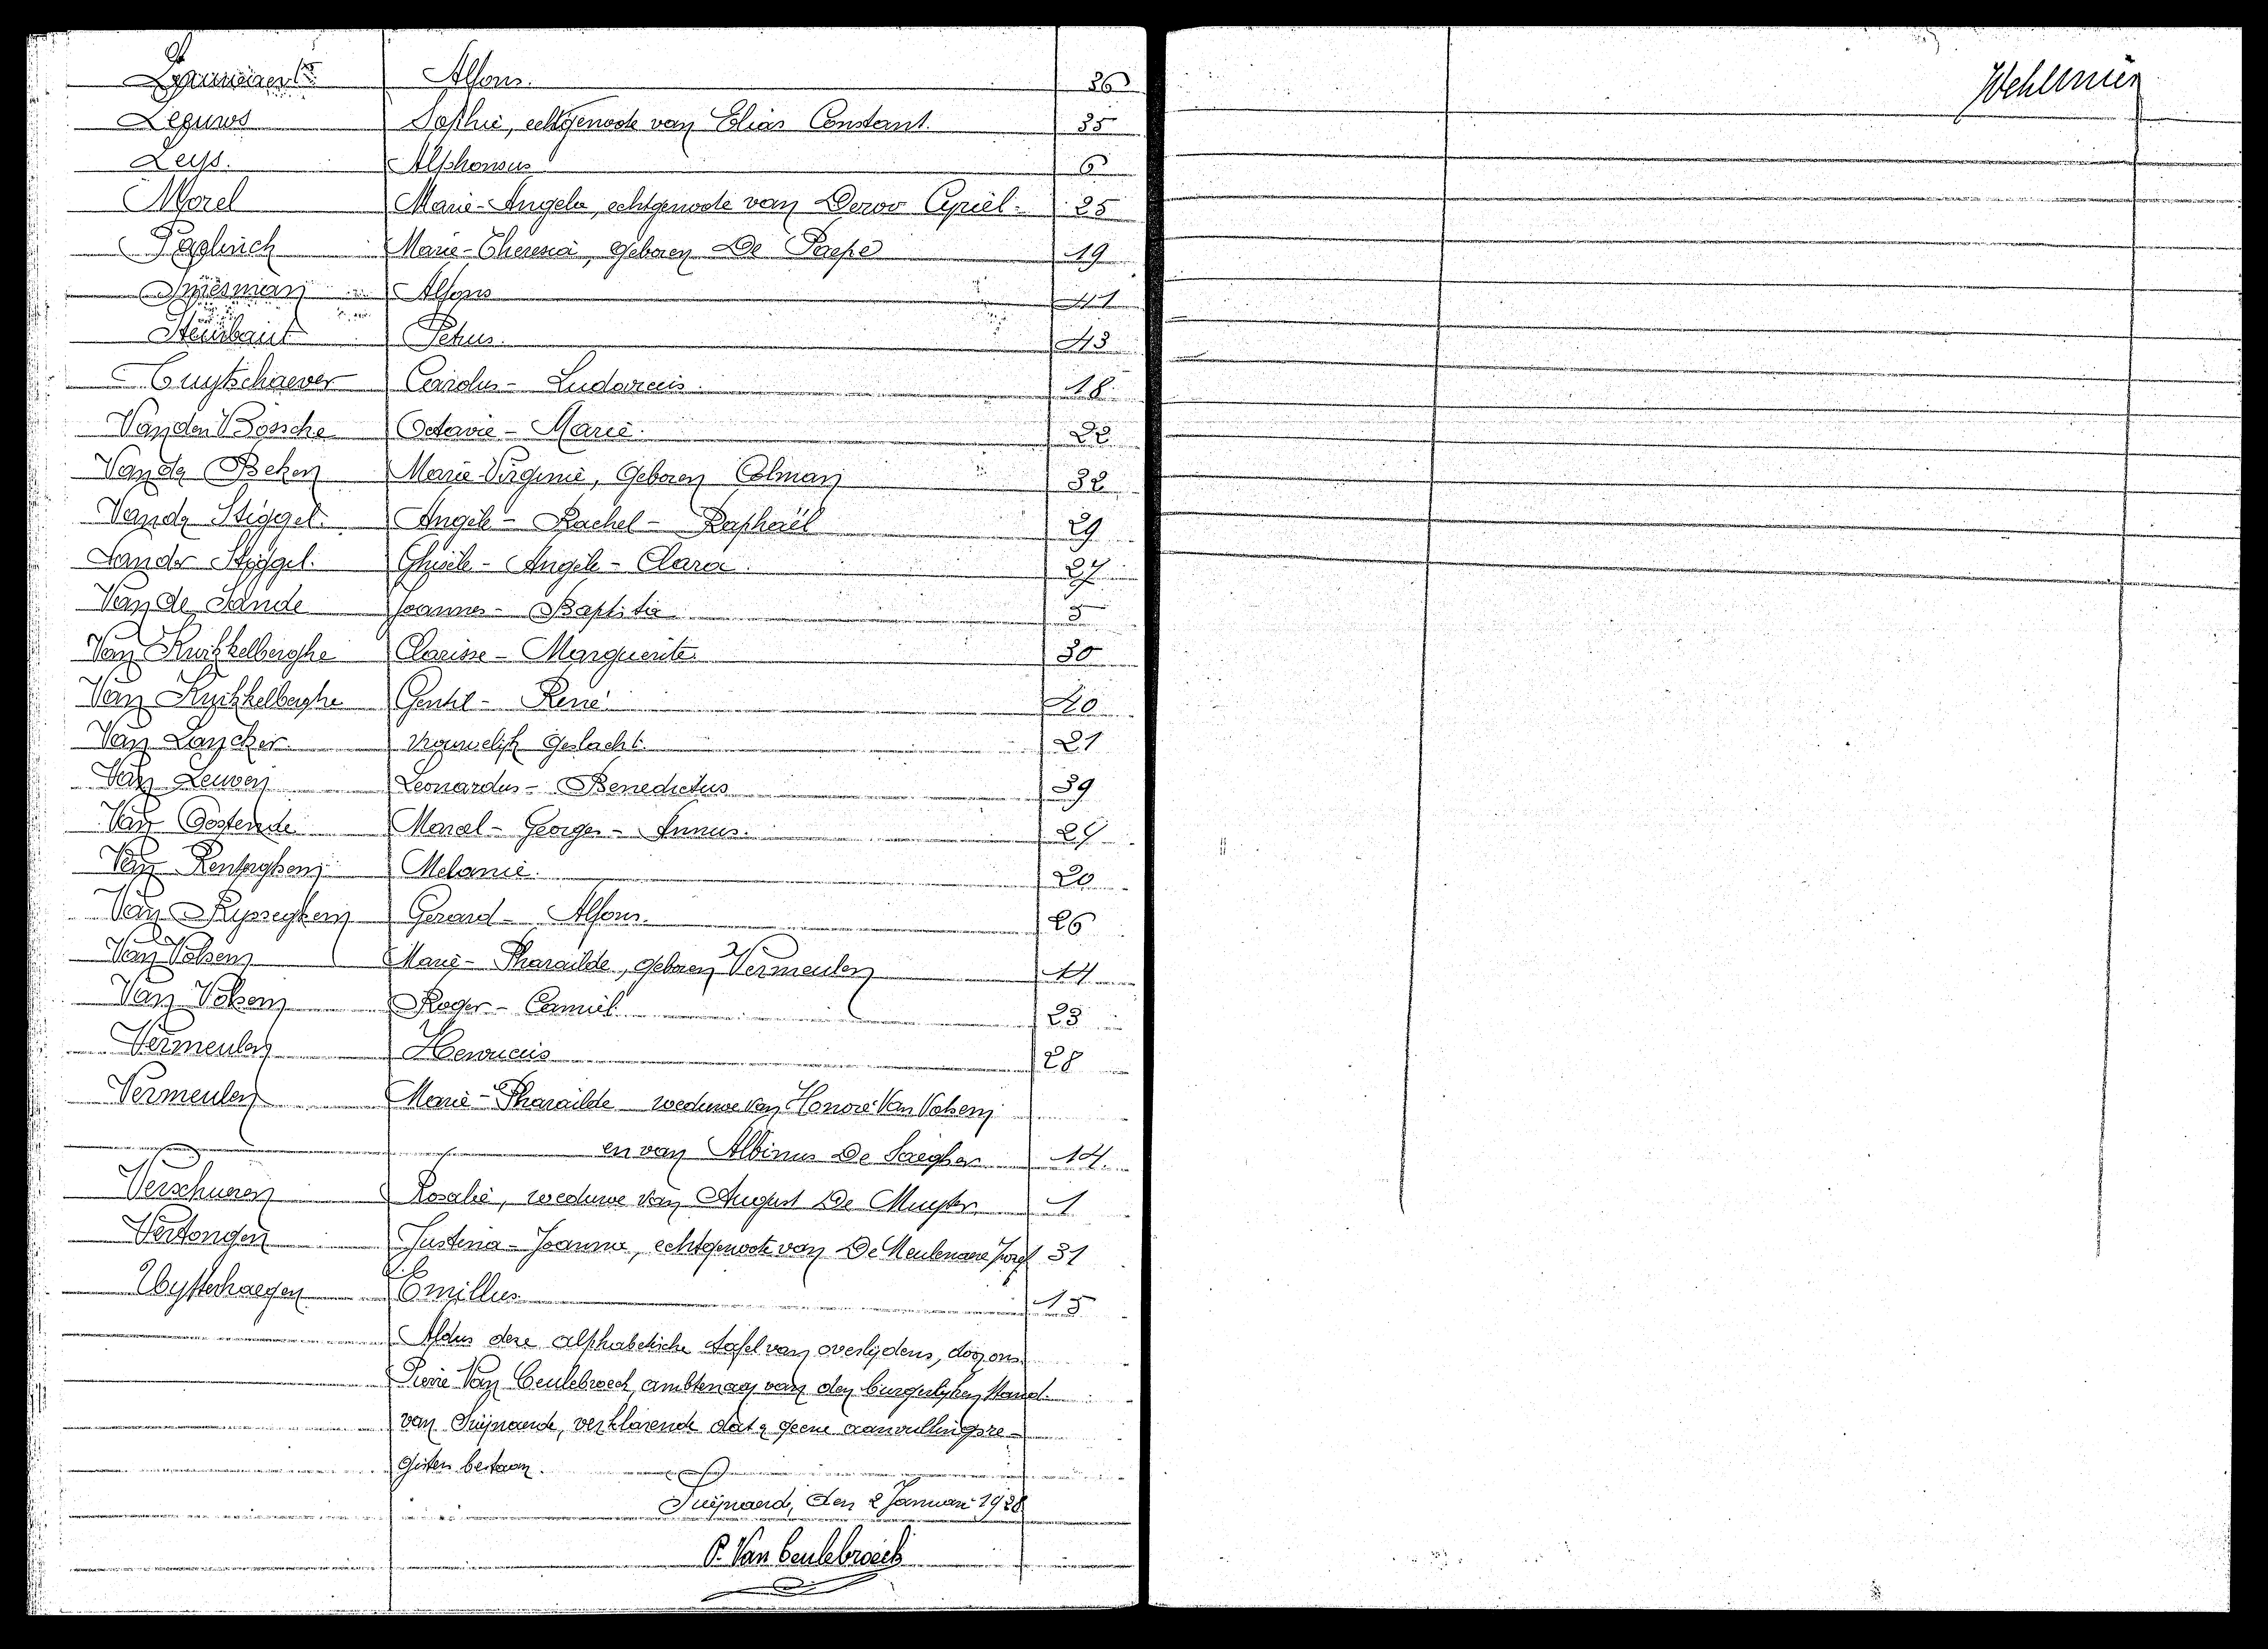 Alfons. 36
Leguws Sophie, echtgenoote van Elias Constant. 35
Leys. Alphonsus 6
Morel Marie-Angela, echtgenoote van Derov Cyriel. 25
Marie-Theresia, geboren De Paepe 19
Alfons 41
Steurbaut Petrus. 43
Cuytschaever Carolus - Ludovicus 18.
Van den Bossche Octavie - Marie. 22
Van der Beken Marie Virginie, geboren Colman 32
Vander Stiggel. Angèle - Rachel - Raphaël 29
Vander Stiggel. Ghisèle - Angèle - Clara. 27
Van de Sande Joannes - Baptista 5
Van Kwikkelberghe Clarisse - Marguerite 30
Van Kwikkelberghe Gentil - René 40
Van Lancker. vrouwelijk geslacht. 21
Van Leuven Leonardus - Benedictus 39
Van Oostende Marcel - Georges - 24
Van Renterghem Melanie. 20
Van Rysseghem Gerard - Alfons. 26
Van Volsem Marie - Pharaïlde, geboren Vermeulen 14
Van Volsem Roger - Camiel 23
Vermeulen Henricus 28
Vermeulen Marie - Pharaïlde weduwe van Honoré Van Volsem
en van Albinus De Saegher 14.
Verschueren Rosalie, weduwe van August De Muyter 1
Vertongen Justina - Joanna, echtgenoote van De Meulenaere Jozef 31
Uyttenhaegen Emillus 15
Aldus deze alphabetische tafel van overlijdens, door ons
Pierre Van Ceulebroeck, ambtenaar van den burgerlyken stand
van Swijnaerde, verklarende dat er geene aanvullingsre-
gisters bestaan.
Swijnaerde, den 2 Januari 1928
P. Van Ceulebroeck